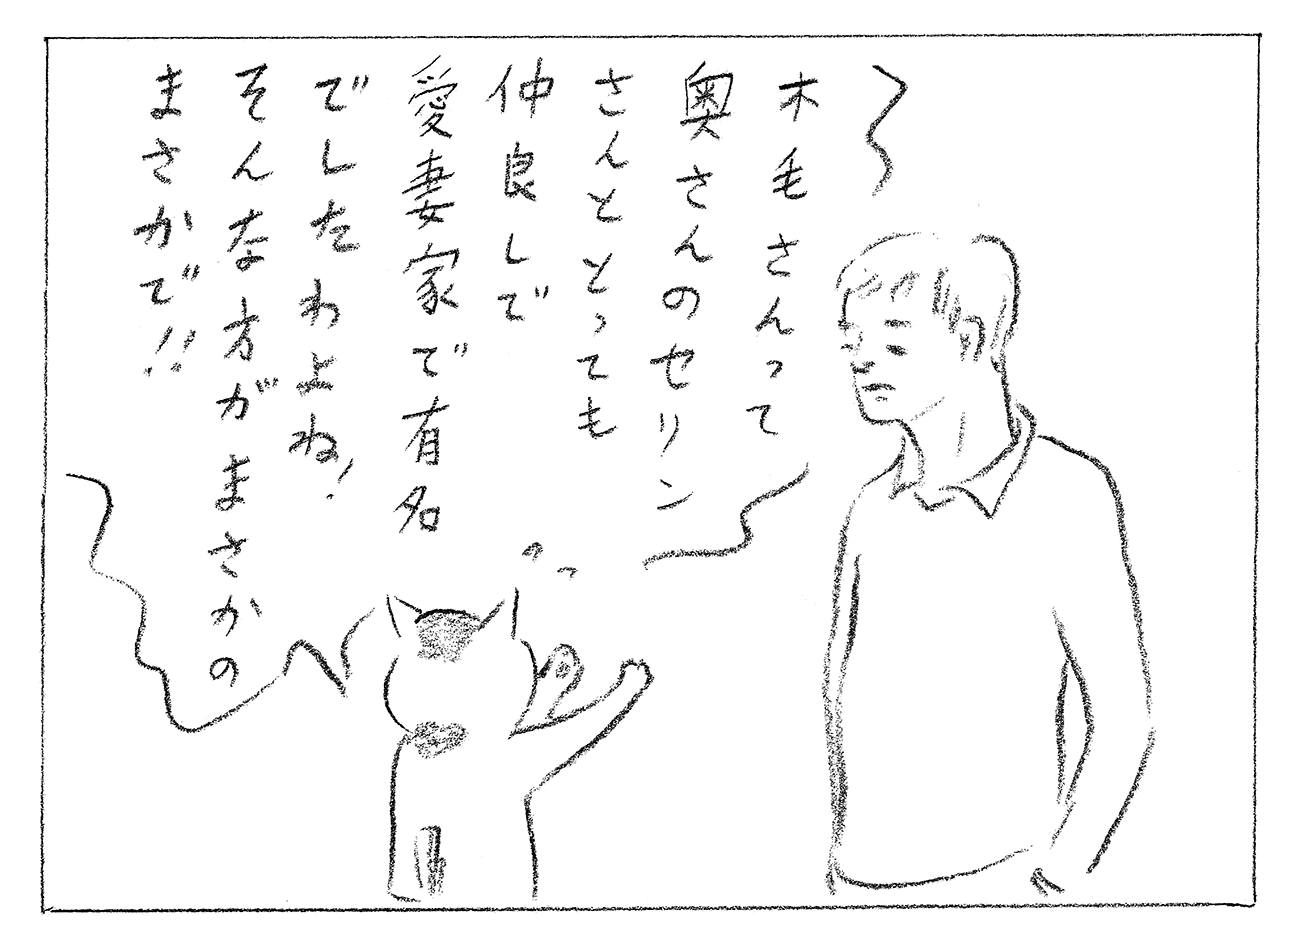 木毛さんって
奥さんのセリン
さんととっても
仲良しで
愛妻家で有名
でしたわよね!
そんな方がまさかの
まさかで!!